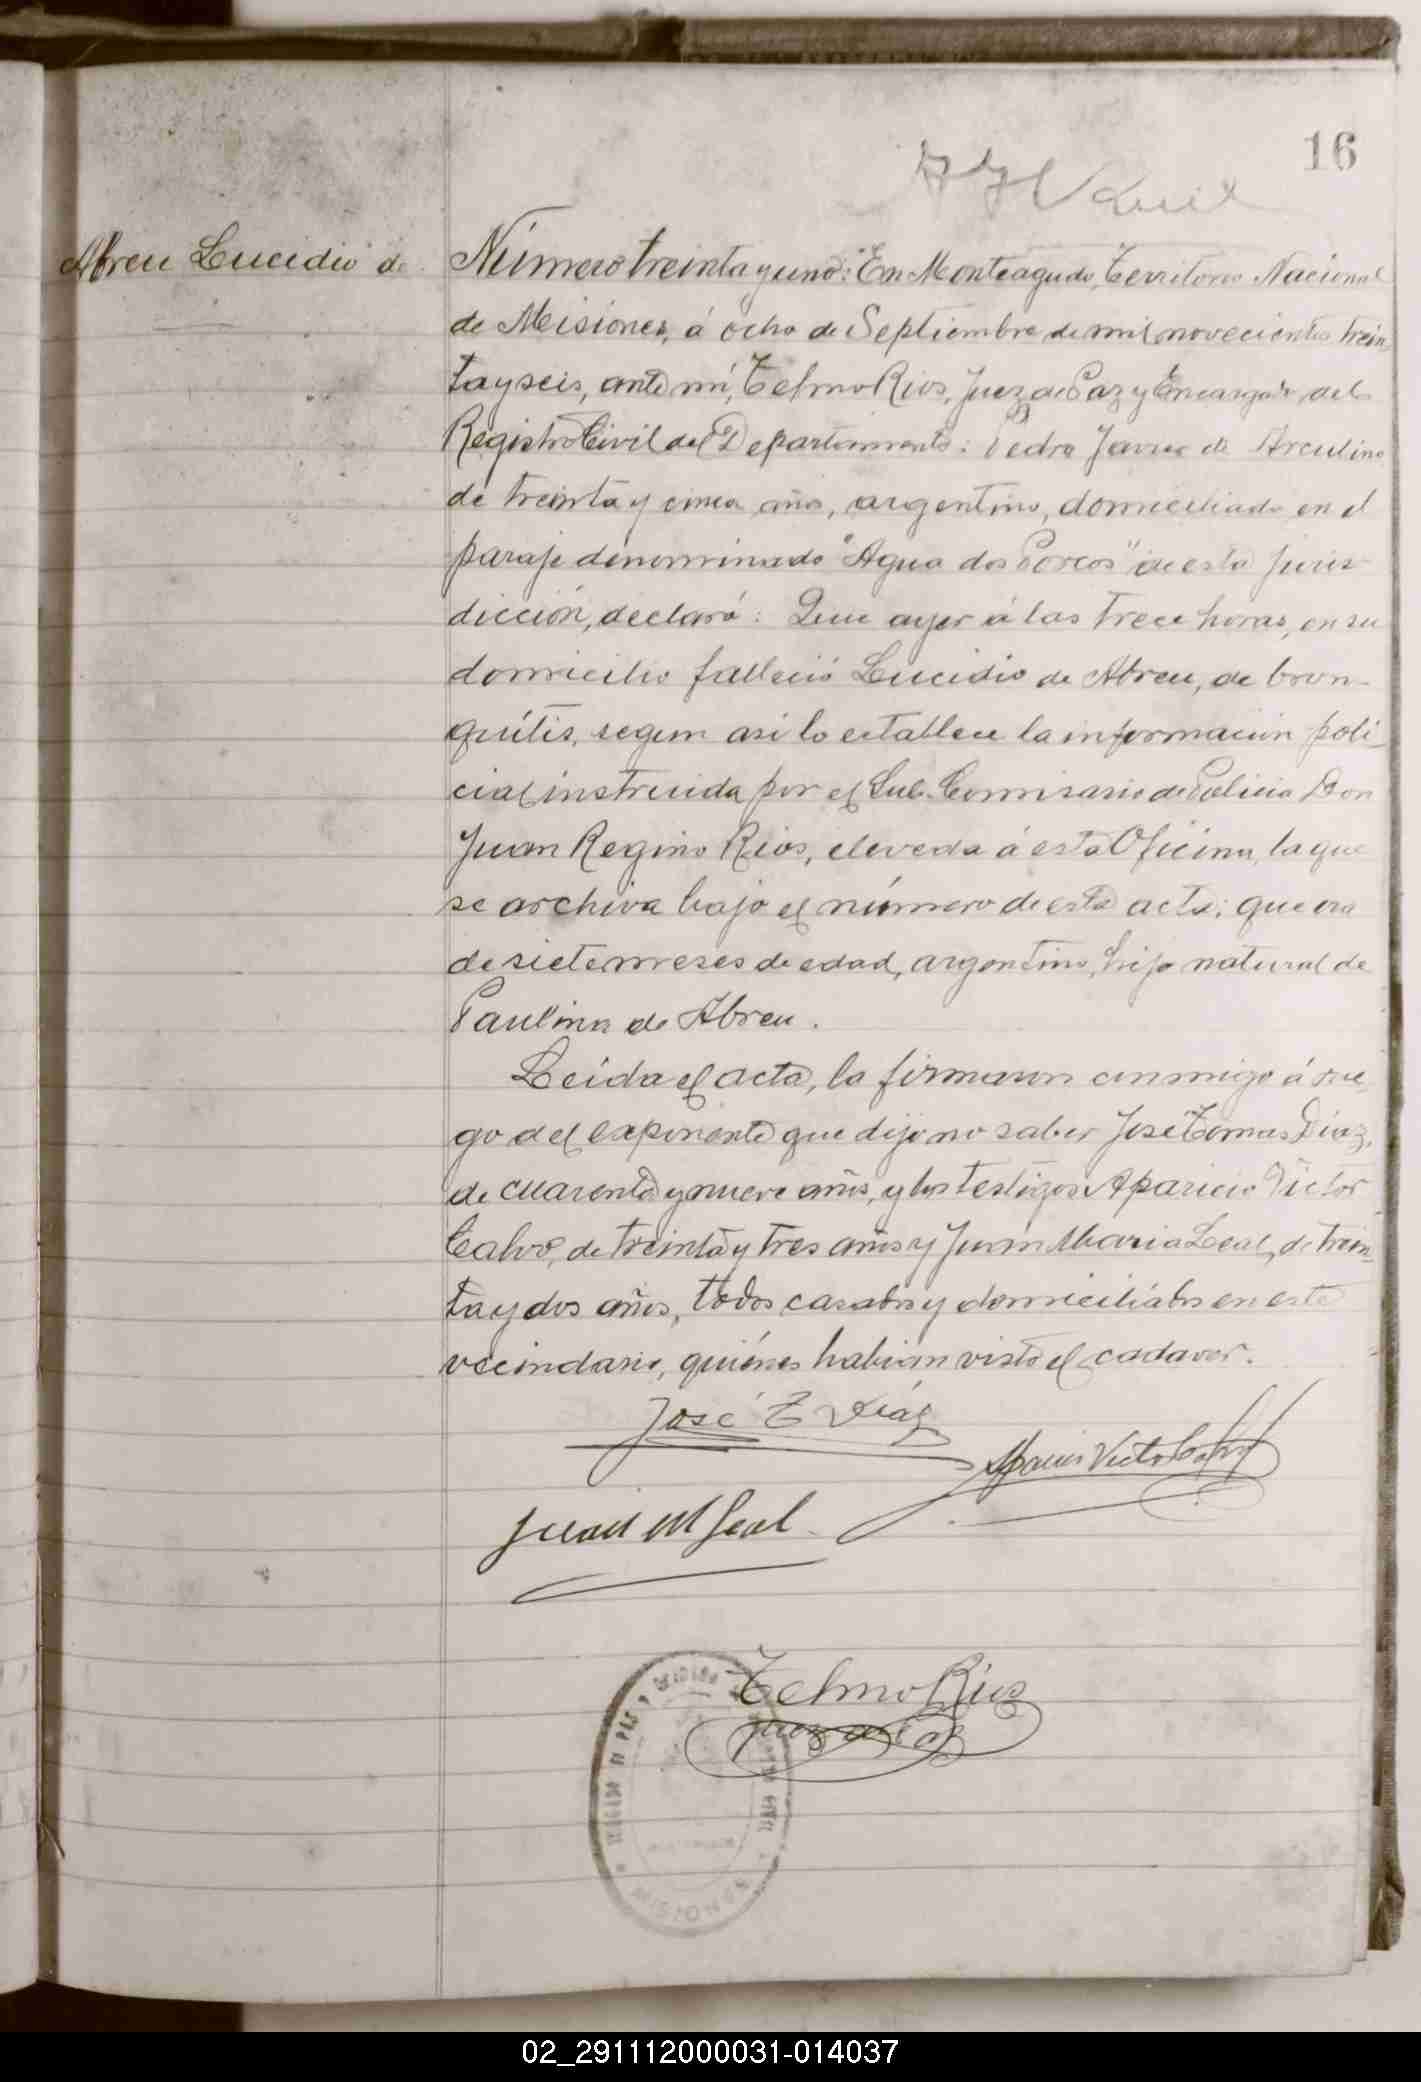 16
Abreu Lucidio de
Número treinta y uno: En Monteagudo, Territorio Nacional
de Misiones, á ocho de Septiembre de mil novecientos trein
ta y seis, ante mí, Telmo Rios, Juez de Paz y Encargado del
Registro Civil del Departamento: Pedro Javier de Arculino
de treinta y cinco años, argentino, domiciliado en el
paraje denominado "Agua dos Porcos" de esta juris-
dicción, declaró: Que ayer á las trece horas, en su
domicilio falleció Lucidio de Abreu, de bron-
quítis, segun así lo establece la información poli
cial instruida por el Sub-Comisario de Policia Don
Juan Regino Rios, elevada á esta Oficina, la que
se archiva bajo el número de esta acta; que era
de siete meses de edad, argentino, hijo natural de
Paulina de Abreu.
Leída el acta, la firmaron conmigo á rue-
go del exponente que dijo no saber José Tomas Diaz,
de cuarenta y nueve años, y los testigos Aparicio Victor
Calvo, de treinta y tres años y Juan Maria Leal, de trein
ta y dos años, todos casados y domiciliados en este
vecindario, quiénes habían visto el cadaver.
José T Diáz
Aparicio Victor Calvo
Juan M Leal
Telmo Rios
Juez de Paz
JUZGADO DE PAZ Y REGISTRO CIVIL
MISIONES
02_291112000031-014037